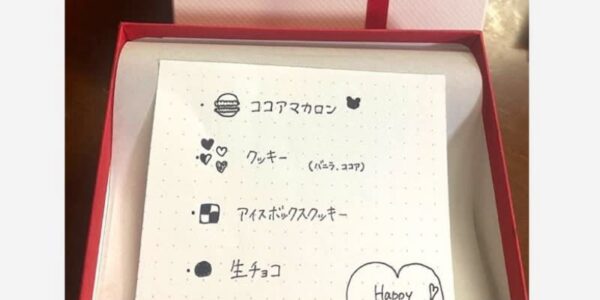 ・ココアマカロン
・クッキー (バニラ、ココア)
・アイスボックスクッキー
・生チョコ
Happy